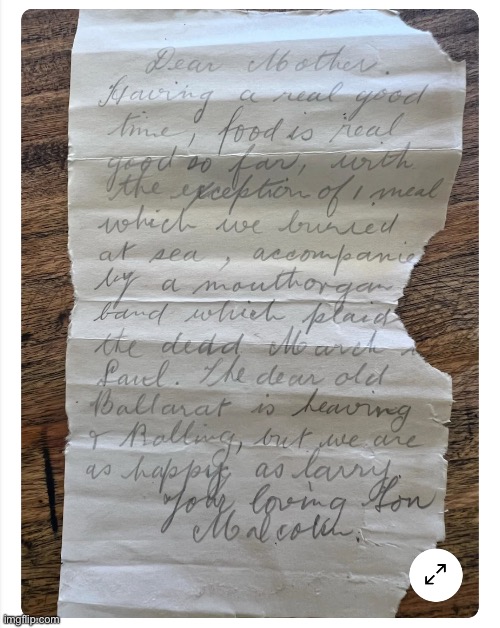 Dear Mother.
Having a real good
time, food is real
good so far, with
the exception of 1 meal
which we buried
at sea, accompanie
by a mouthorgan
band which plaid
the dedd March
Saul. The dear old
Ballarat is heaving
& Rolling, but we are
as happy as larry.
Your loving Son
Malcolm.
imgflip.com